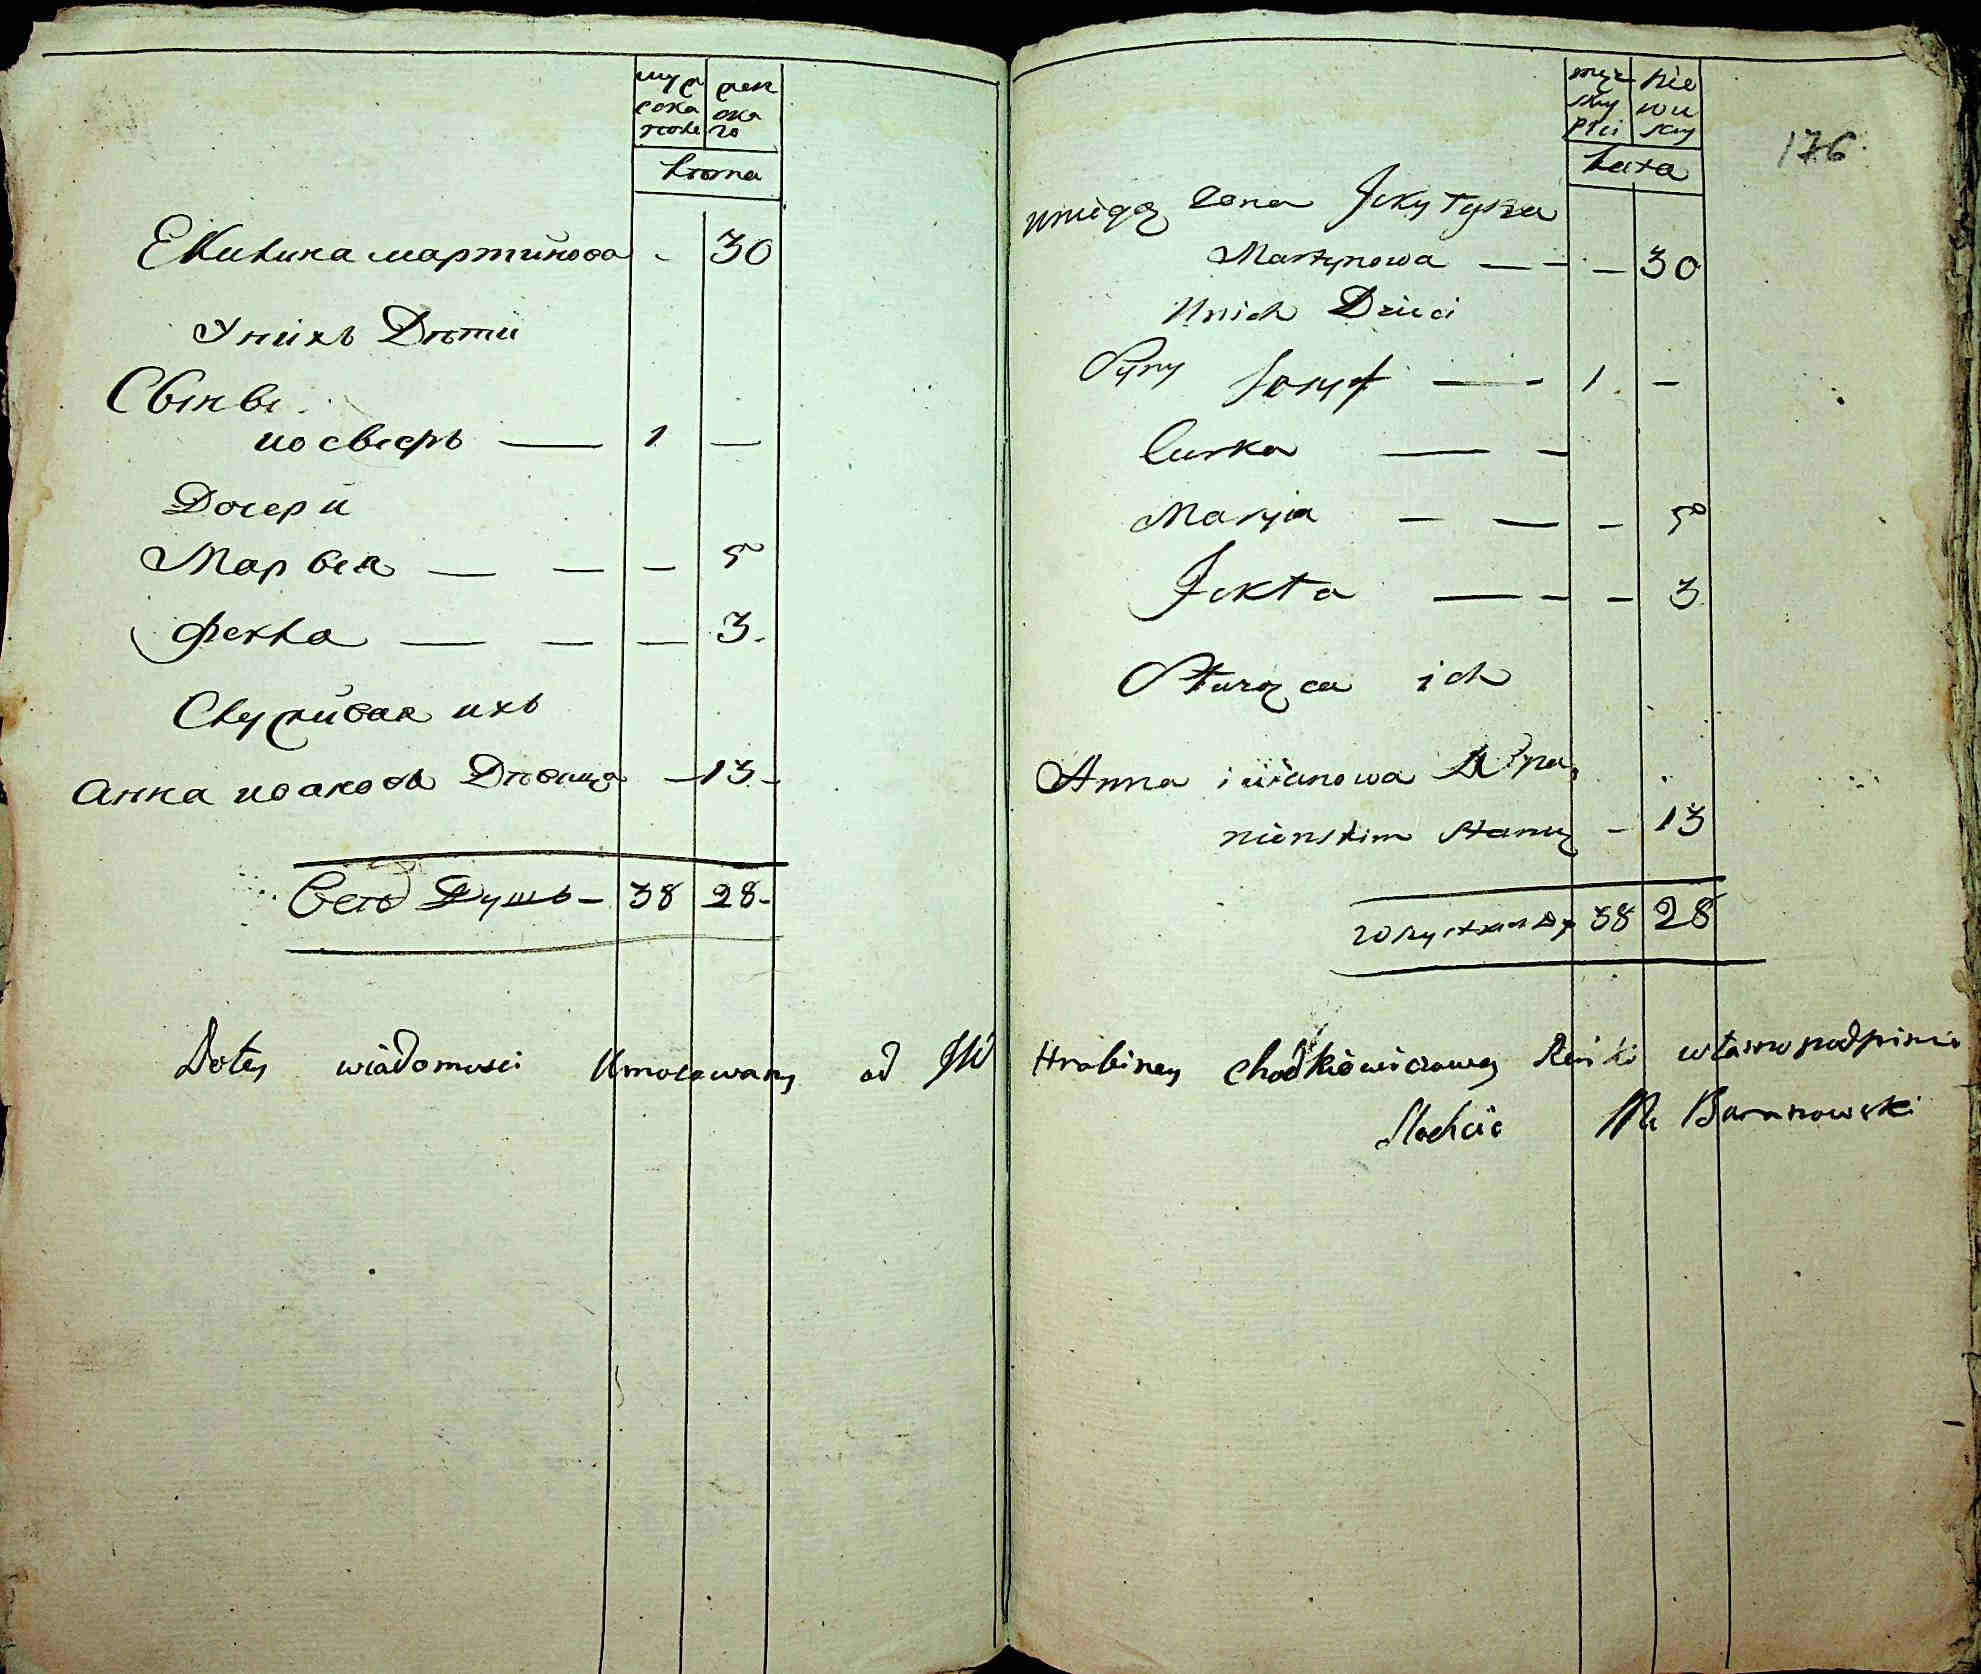 муж
ска
женска
го
лѣта
Екилина мартинова - 30
У нихъ Дѣти
Сынъ
иосвефъ — 1 —
Дочери
Марвея — — — 5
Фекла — — — 3
Служивая ихъ
Анна иоакова Дѣвица — 13
Всего Душъ — 38 28
męz
kiey
płci
nie
wie
skiey
Lata
176
u niego zona Jekylyna
Martynowa — — — 30
U nich Dzieci
Syny Jozyf — - 1 -
Curka — -
Maryia - — - 5
Jekla — - - 3
Służąca ich
Anna iwanowa w pa
nienskim stanie - 13
Wszystkich Du 38 28
Do tey wiadomosci Umocowany od JW Hrabiney Chodkiewiczowey Ręki własno podpisuie
Slachcic Baranowski